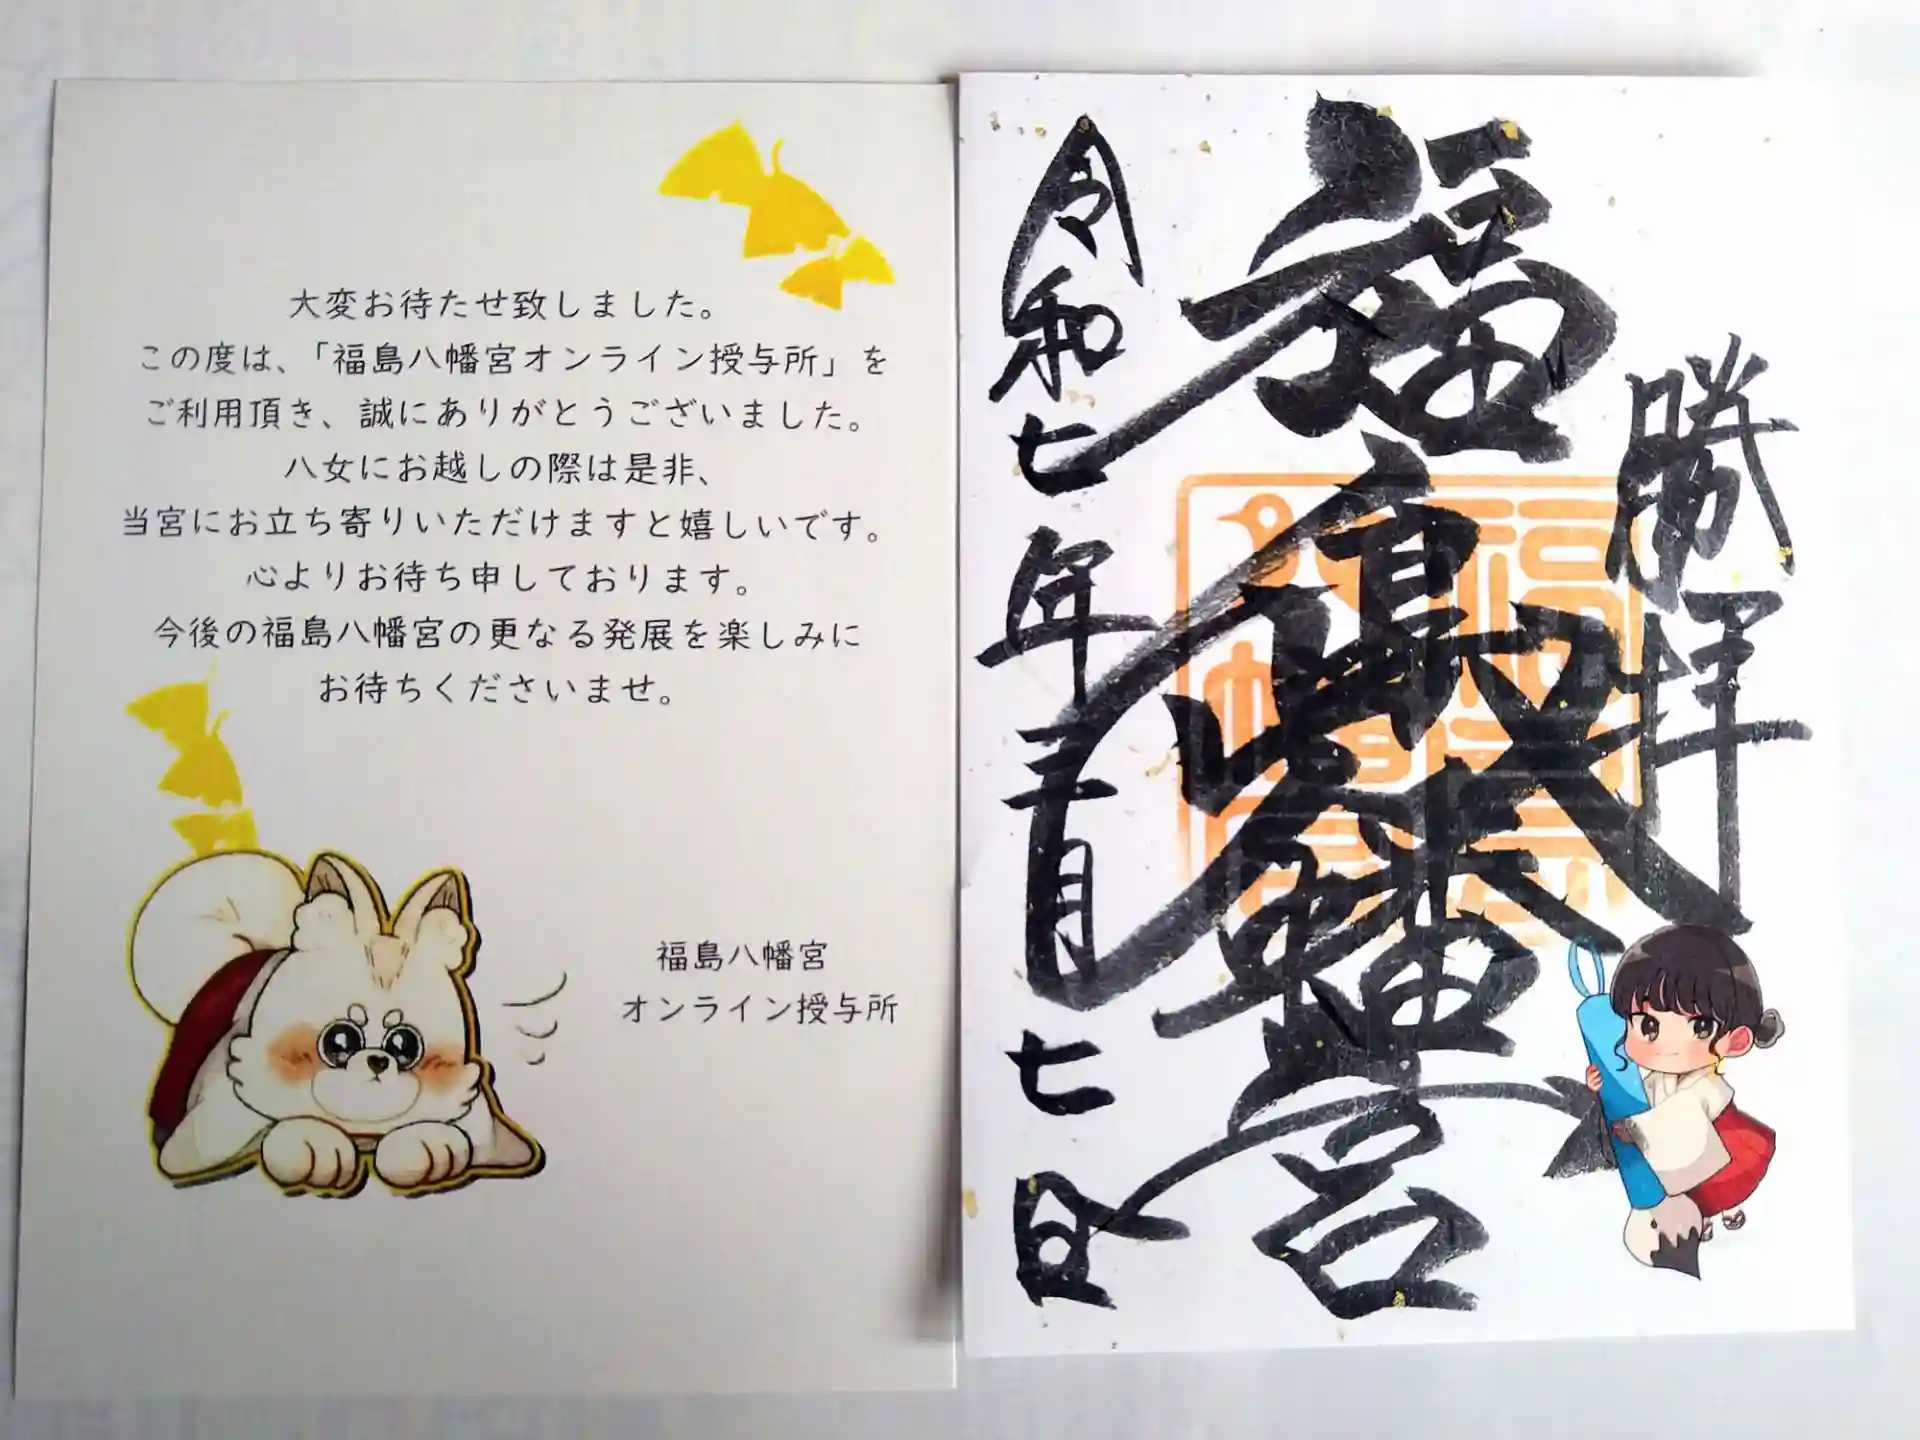 大変お待たせ致しました。
この度は、「福島八幡宮オンライン授与所」を
ご利用頂き、誠にありがとうございました。
八女にお越しの際は是非、
当宮にお立ち寄りいただけますと嬉しいです。
心よりお待ち申しております。
今後の福島八幡宮の更なる発展を楽しみに
お待ちくださいませ。
福島八幡宮
オンライン授与所
勝拝
福島八幡宮
令和七年三月七日